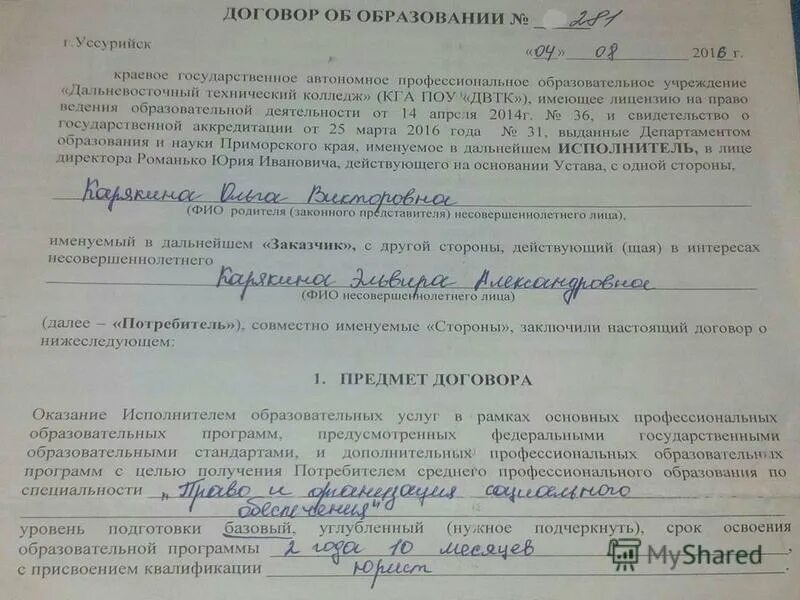 ДОГОВОР ОБ ОБРАЗОВАНИИ № 281
г.Уссурийск «04» 08 2016 г.
краевое государственное автономное профессиональное образовательное учреждение
«Дальневосточный технический колледж» (КГА ПОУ «ДВТК»), имеющее лицензию на право
ведения образовательной деятельности от 14 апреля 2014г. № 36, и свидетельство о
государственной аккредитации от 25 марта 2016 года № 31, выданные Департаментом
образования и науки Приморского края, именуемое в дальнейшем ИСПОЛНИТЕЛЬ, в лице
директора Романько Юрия Ивановича, действующего на основании Устава, с одной стороны,
Карякина Ольга Викторовна
(ФИО родителя (законного представителя) несовершеннолетнего лица),
именуемый в дальнейшем «Заказчик», с другой стороны, действующий (щая) в интересах
несовершеннолетнего
Карякина Эльвира Александровна
(ФИО несовершеннолетнего лица)
(далее – «Потребитель»), совместно именуемые «Стороны», заключили настоящий договор о
нижеследующем:
1. ПРЕДМЕТ ДОГОВОРА
Оказание Исполнителем образовательных услуг в рамках основных профессиональных
образовательных программ, предусмотренных федеральными государственными
образовательными стандартами, и дополнительных профессиональных образовательных
программ с целью получения Потребителем среднего профессионального образования по
специальности „Право и организация социального
обеспечения"
уровень подготовки базовый, углубленный (нужное подчеркнуть), срок освоения
образовательной программы 2 года 10 месяцев,
с присвоением квалификации юрист
MyShared